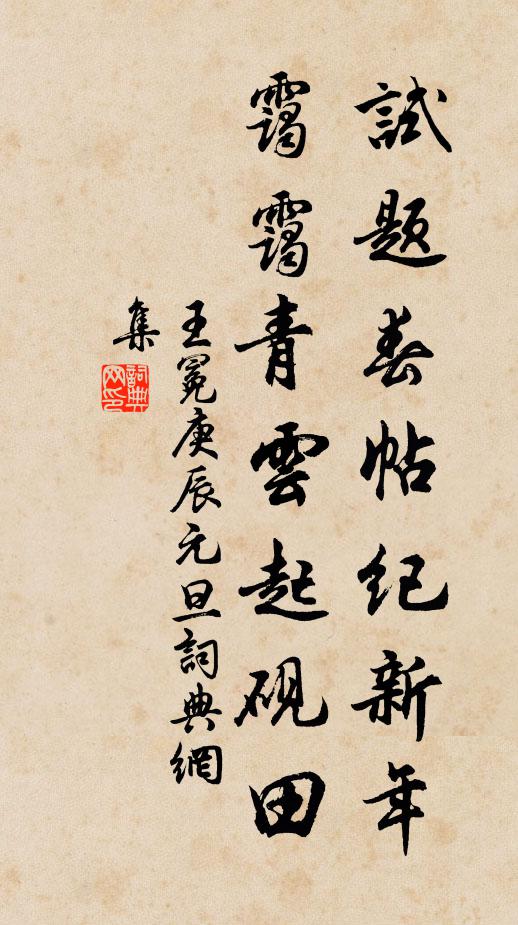 試題春帖紀新年
靄靄青雲起硯田
王冕庚辰元旦詞典網
集
詞典網印